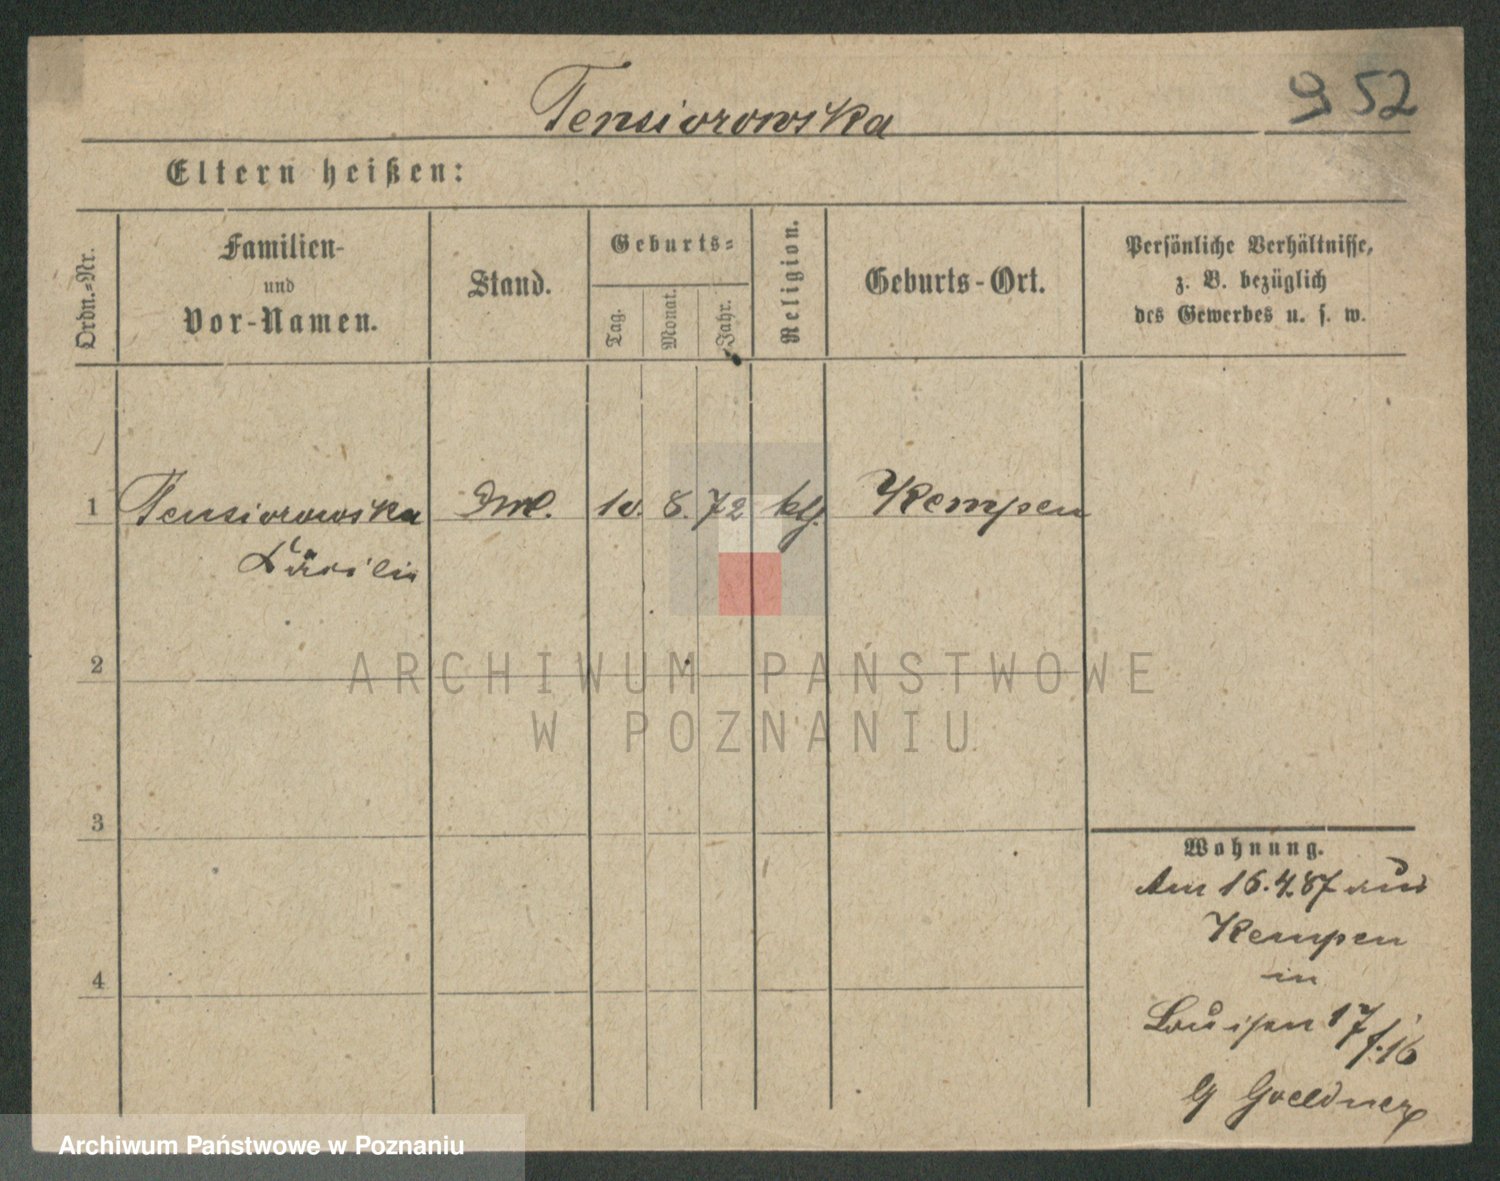 Tensiorowska
952
Eltern heißen:
Ordn.-Nr.
Familien-
und
Vor-Namen.
Stand.
Geburts-
Tag.
Monat.
Jahr.
Religion.
Geburts-Ort.
Persönliche Verhältnisse,
z. B. bezüglich
des Gewerbes u. s. w.
1 Tensiorowska 10. 8. 72 ktg. Kempen
2
3
4
Wohnung.
Am 16.4.87 aus
Kempen
in
Louisen 17
b/ Goeldner
ARCHIWUM PAŃSTWOWE
W POZNANIU
Archiwum Państwowe w Poznaniu